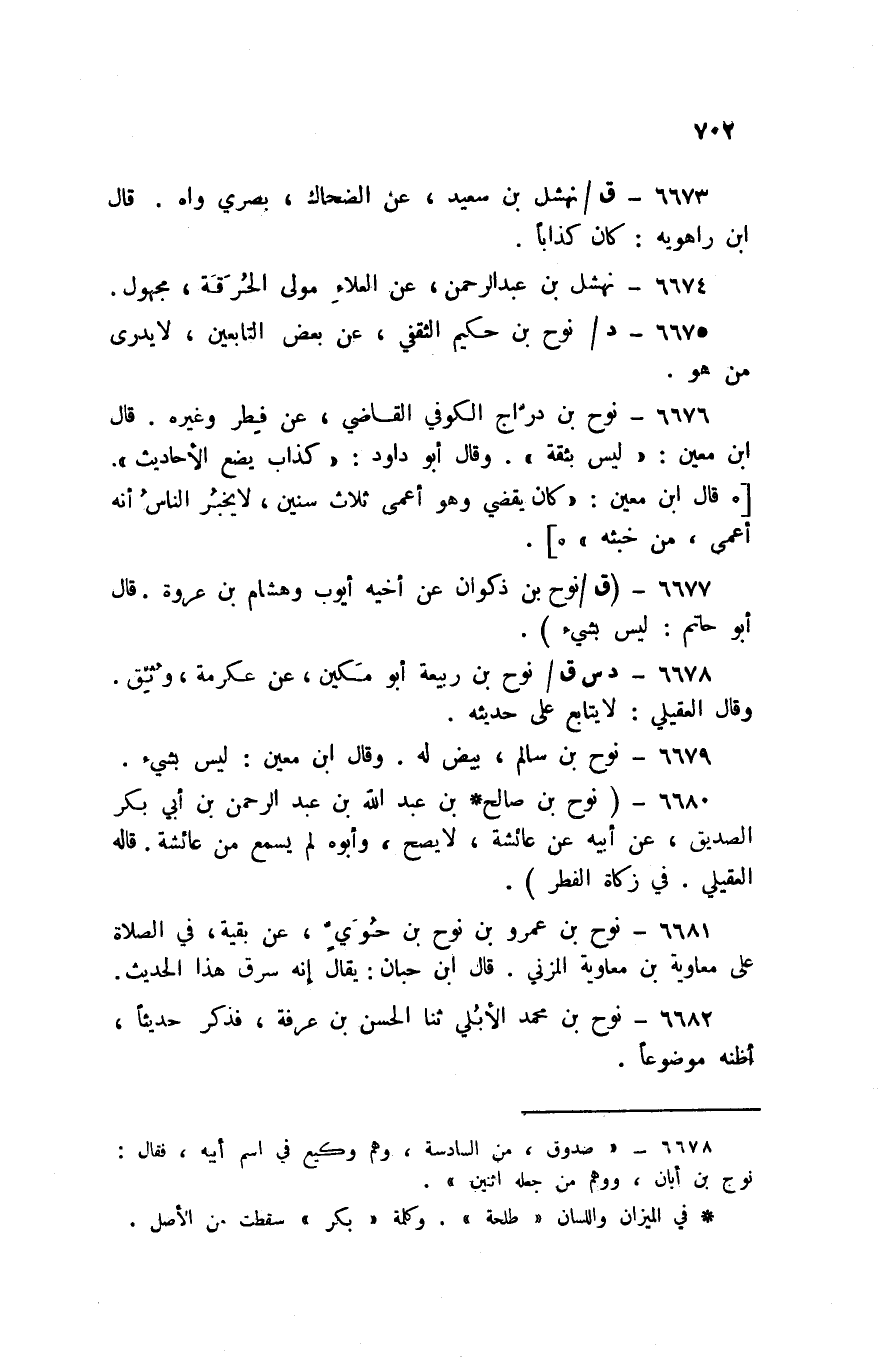 ٧٠٢
٦٦٧٣ – ق / نهشل بن سعيد ، عن الضحاك ، بصري واه . قال
ابن راهويه : كان كذاباً .
٦٦٧٤ – نهشل بن عبدالرحمن ، عن العلاء مولى الحُرَقَة ، مجهول .
٦٦٧٥ – د / نوح بن حكيم الثقفي ، عن بعض التابعين ، لايدرى
من هو .
٦٦٧٦ – نوح بن درّاج الكوفي القاضي ، عن فِطر وغيره . قال
ابن معين : « ليس بثقة » . وقال أبو داود : « كذاب يضع الأحاديث ».
[ه قال ابن معين : «كان يقضي وهو أعمى ثلاث سنين ، لايخبُر الناسُ أنه
أعمى ، من خبثه » ه] .
٦٦٧٧ – (ق / نوح بن ذكوان عن أخيه أيوب وهشام بن عروة . قال
أبو حاتم : ليس بشيء ) .
٦٦٧٨ – د س ق / نوح بن ربيعة أبو مَكين ، عن عكرمة ، وُثِّق .
وقال العقيلي : لايتابع على حديثه .
٦٦٧٩ – نوح بن سالم ، بيض له . وقال ابن معين : ليس بشيء .
٦٦٨٠ – ( نوح بن صالح* بن عبد الله بن عبد الرحمن بن أبي بكر
الصديق ، عن أبيه عن عائشة ، لايصح ، وأبوه لم يسمع من عائشة . قاله
العقيلي . في زكاة الفطر ) .
٦٦٨١ – نوح بن عمرو بن نوح بن حُوَيٍّ ، عن بقية ، في الصلاة
على معاوية بن معاوية المزني . قال ابن حبان : يقال إنه سرق هذا الحديث.
٦٦٨٢ – نوح بن محمد الأبُلي ثنا الحسن بن عرفة ، فذكر حديثاً ،
أظنه موضوعاً .
٦٦٧٨ – « صدوق ، من السادسة ، وهم وكيع في اسم أبيه ، فقال :
نوح بن أبان ، ووهم من جعله اثنين » .
* في الميزان واللسان « طلحة » . وكلمة « بكر » سقطت من الأصل .